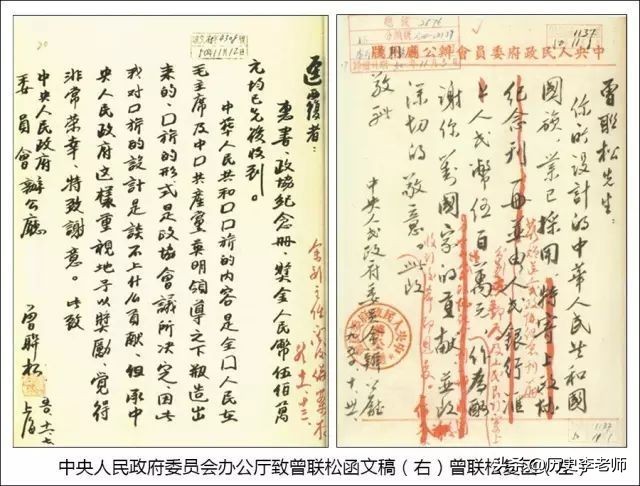 中央人民政府委員會辦公廳用牋
曾联松先生:
你所设计的中華人民共和國
國旗,業已採用。特寄上政协
紀念刊一册並由人民銀行滙
上人民幣伍百萬元,作為酬
謝你對國家的貢献,並致
深切的敬意。此致
敬礼
中央人民政府委員會辦公廳
逕覆者:
惠書,政協紀念册,獎金人民幣伍佰萬
元均已先後收到。
中華人民共和口口旂的內容是全口人民在
毛主席及中口共產黨英明領導之下創造出
來的。口旂的形式是政協會議所決定。因此
我對口旂的設計是談不上什么貢献。但承中
央人民政府這樣重視地予以奬勵,覺得
非常榮幸,特致謝意。此致
中央人民政府
委員會辦公廳
曾聯松 上海
中央人民政府委员会办公厅致曾联松函文稿(右)曾联松复函(左)
头条@历史李老师